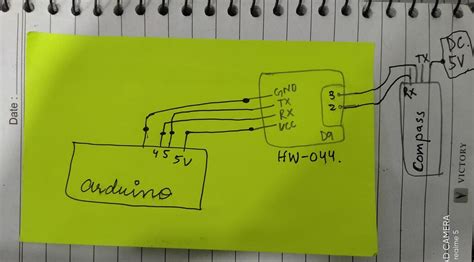 Date :
DC.
5V
TX
RX
GND
TX
RX
VCC
3
2
D9
HW-044.
Compass
4 5 5V
arduino
VICTORY
AD CAMERA
realme 5